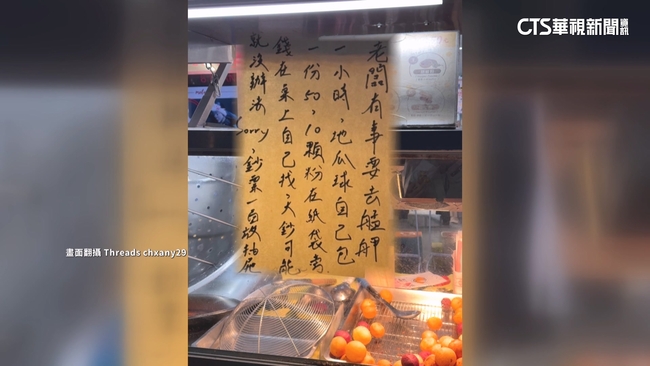 CTS華視新聞資訊
老闆有事要去艋舺
一小時,地瓜球自己包
一份50,10顆粉在紙袋旁
錢在桌上自己找,大鈔可能
就沒辦法Sorry,鈔票一百放抽屜
畫面翻攝 Threads chxany29